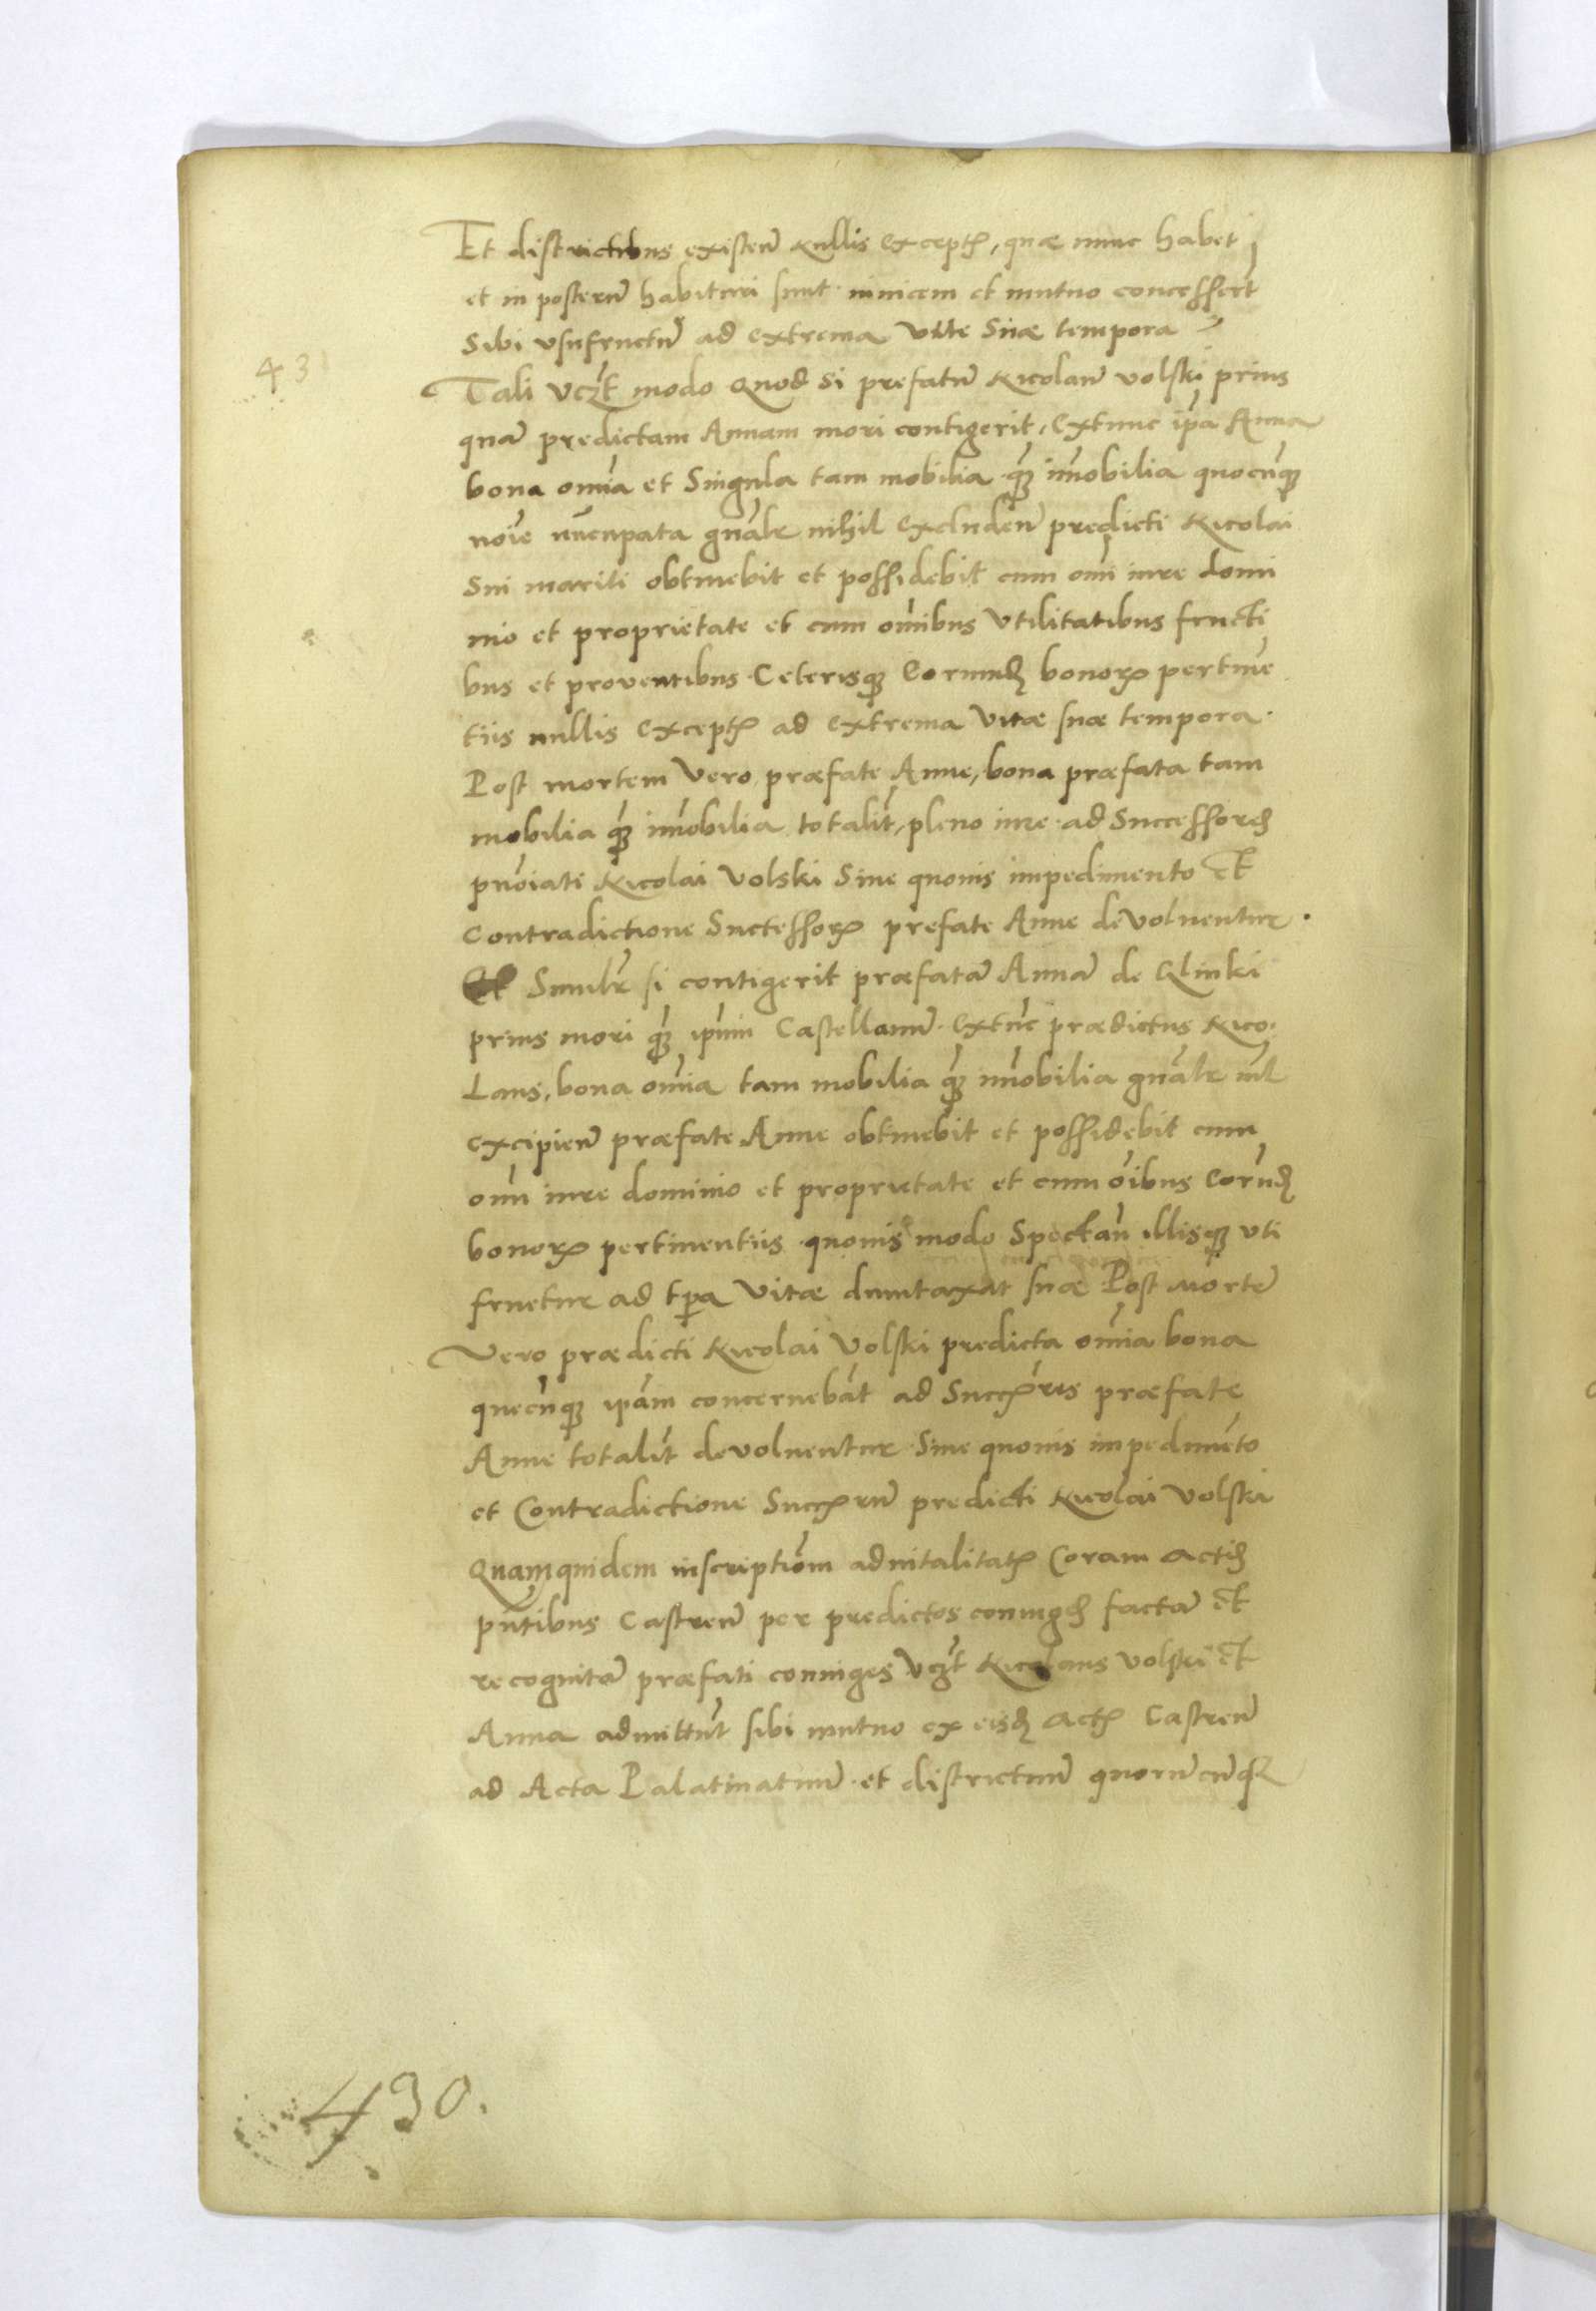 Et districtibus existeñ nullis exceptis, quæ nunc habet
et in posterũ habituri sunt inuicem et mutuo concesserũt
Sibi vsufructũ ad extrema Vite Suæ tempora
43
Tali Vcz̃t modo Quod Si prefatũ Nicolaũ Volski prius
quã predictam Annam mori contigerit, Extunc ip̃a Anna
bona om̃ia et Singula tam mobilia q̃ʒ im̃obilia quocũqʒ
noĩe nũcupata gñalr̃ nihil Excludeñ predicti Nicolai
Sui mariti obtinebit et possidebit cum om̃i iure domi
nio et proprietate et cum om̃ibus Vtilitatibus fructi
bus et proventibus Ceterisqʒ Eorundʒ bonorꝝ pertine
tiis nullis Exceptis ad extrema Vitæ suæ tempora.
Post mortem Vero præfate Anne, bona præfata tam
mobilia q̃ʒ im̃obilia totalit̃, pleno iure ad Successores
pñoiati Nicolai Volski Sine quouis impedimento Et
Contradictione Successorꝝ prefate Anne deVoluentur.
Et Similr̃ si contigerit præfatã Annã de Glinki
prius mori q̃ʒ ip̃um Castellanũ. Extũc prædictus Nico.
Laus, bona om̃ia tam mobilia q̃ʒ im̃obilia gñalr̃ nil̃
excipieñ præfate Anne obtinebit et possidebit cum
om̃i iure dominio et proprietate et cum oĩbus Eorũdʒ
bonorꝝ pertinentiis quouis modo Spectañ illisqʒ vti
fruetur ad tp̃a Vitæ duntaxat suæ Post Mortẽ
Vero prædicti Nicolai Volski predicta om̃ia bona
quecũqʒ ip̃am concernebãt ad Succʒ̃res præfate
Anne totalit̃ devoluentur Sine quouis impedimẽto
et Contradictione Succʒ̃rũ predicti Nicolai Volski
Quamquidem inscriptiõm aduitalitatis Coram Actis
pñtibus Castreñ per predictos coniuges factã Et
recognitã præfati coniuges Vcz̃t Nicolaus Volski Et
Anna admittũt sibi mutuo ex eisdʒ Actis Castreñ
ad Acta Palatinatuũ et districtuũ quorũcũqʒ
430.